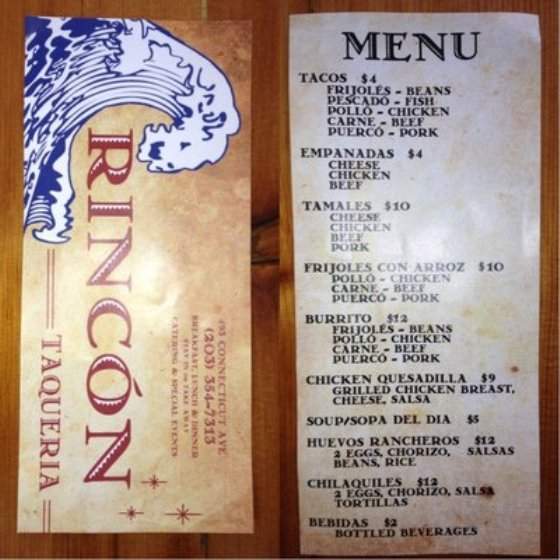 RINCÓN
TAQUERIA
193 CONNECTICUT AVE
(203) 354-7313
BREAKFAST, LUNCH & DINNER
STAY IN OR TAKE AWAY
CATERING & SPECIAL EVENTS
MENU
TACOS $4
FRIJOLÉS - BEANS
PESCADÓ - FISH
POLLÓ - CHICKEN
CARNE - BEEF
PUERCÓ - PORK
EMPANADAS $4
CHEESE
CHICKEN
BEEF
TAMALES $10
CHEESE
CHICKEN
BEEF
PORK
FRIJOLES CON ARROZ $10
POLLÓ - CHICKEN
CARNE - BEEF
PUERCÓ - PORK
BURRITO $12
FRIJOLÉS - BEANS
POLLÓ - CHICKEN
CARNE - BEEF
PUERCÓ - PORK
CHICKEN QUESADILLA $9
GRILLED CHICKEN BREAST,
CHEESE, SALSA
SOUP/SOPA DEL DIA $5
HUEVOS RANCHEROS $12
2 EGGS, CHORIZO, SALSAS
BEANS, RICE
CHILAQUILES $12
2 EGGS, CHORIZO, SALSA
TORTILLAS
BEBIDAS $2
BOTTLED BEVERAGES